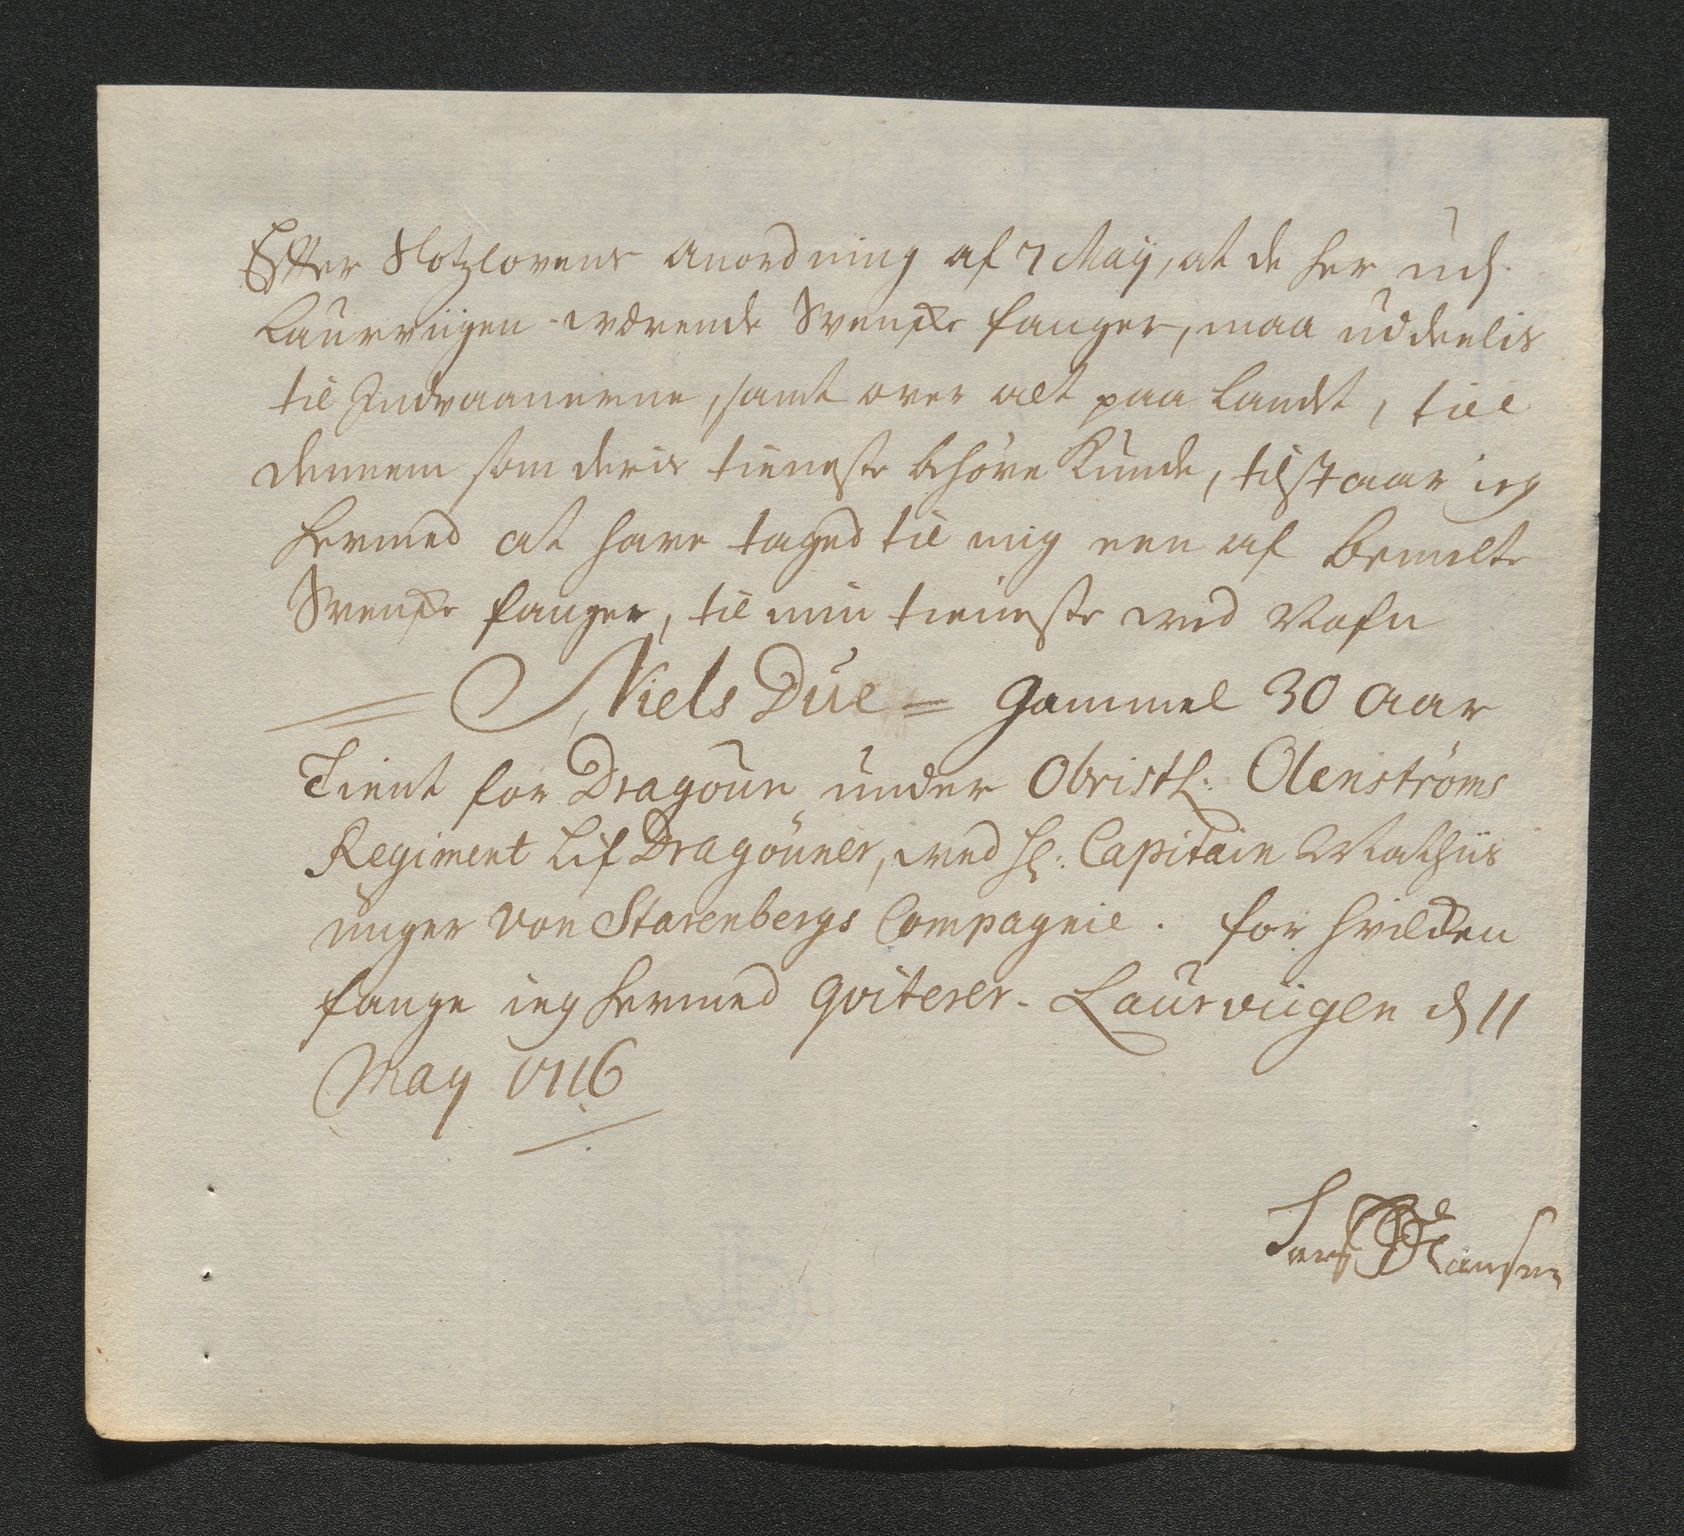 Efter Slotzlovens anordning af 7 Maij, at de her udj
Laurviigen værende Svenske fanger, maa uddeelis
til Indvaanerne, samt over alt paa Landet, till
dennem som deris tieneste behøve kunde, tilstaar ieg
hermed at have taged til mig een af bemelte
Svenske fanger, til min tieneste ved Nafn
= Niels Due = gammel 30 aar
Tient for Dragoun under Obristl: Olenstrøms
Regiment Lif Dragouner, ved Hr: Capitain Mathiis
unger von Starenbergs Compagnie. for hvilcken
fange ieg hermed qviterer. Laurviigen d 11
May 1716
Hansen